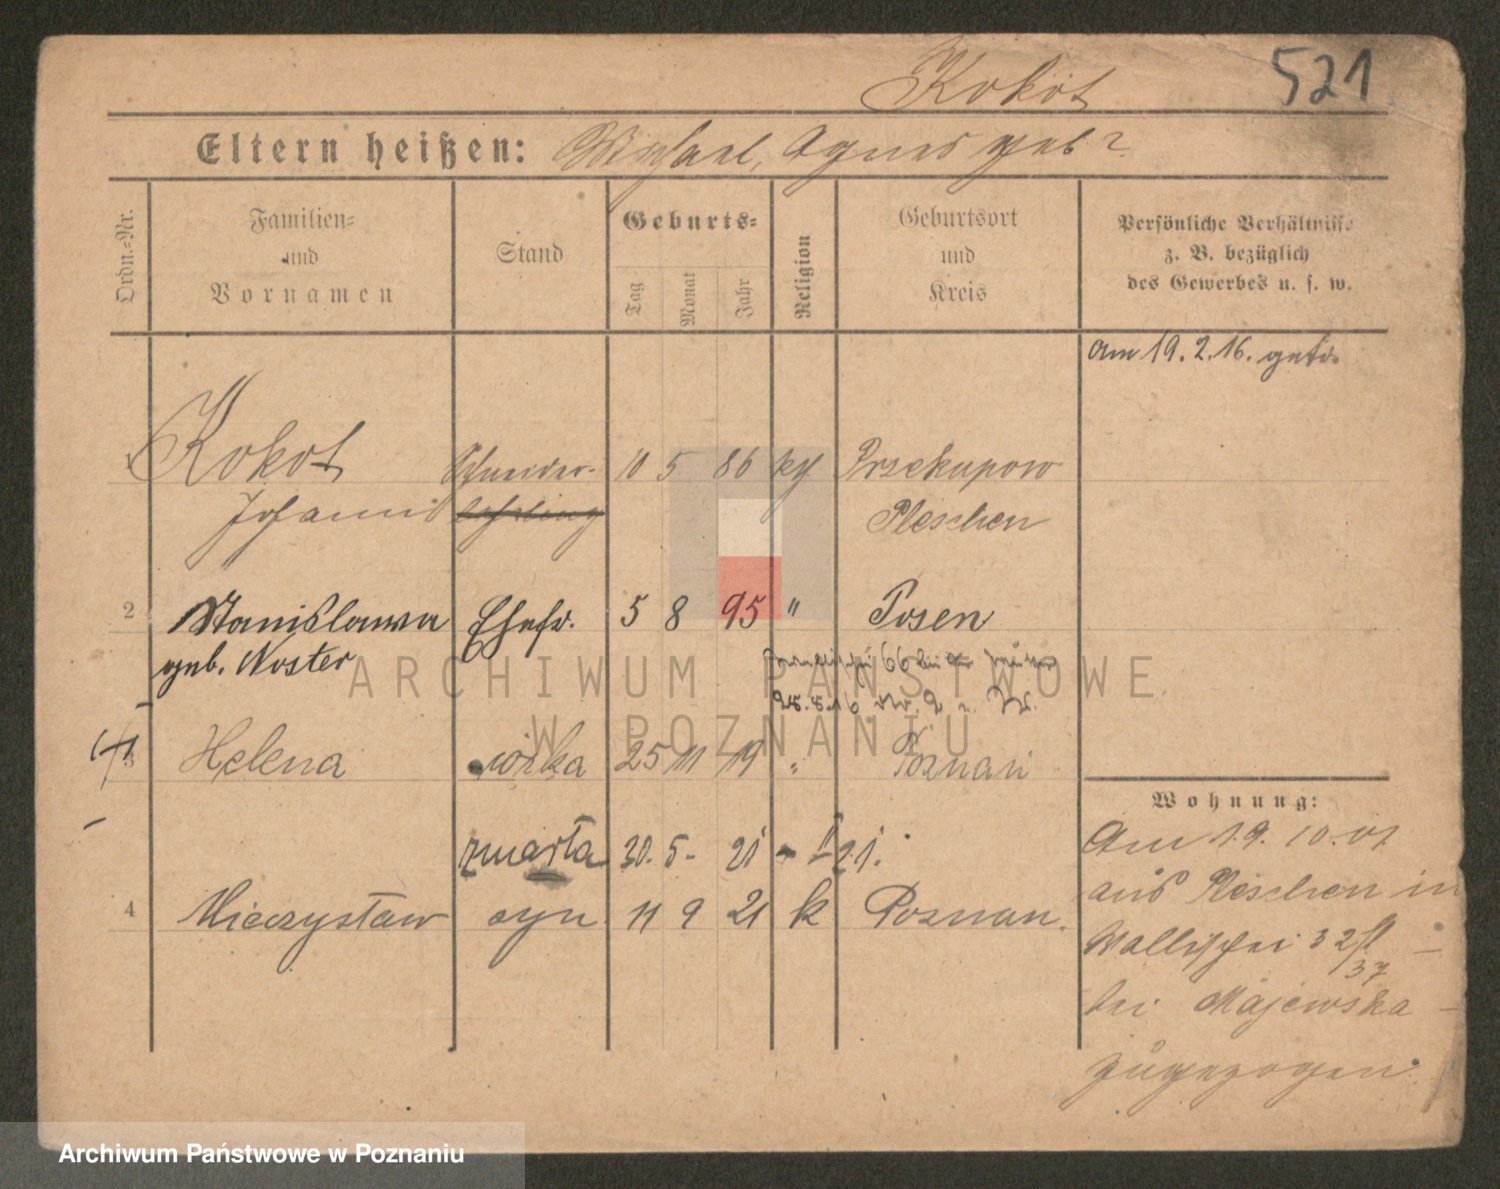 521
Kokot
Eltern heißen: Michael, Agnes geb?
Ordn.=Nr.
Familien=
und
Vornamen
Stand
Geburts=
Tag
Monat
Jahr
Religion
Geburtsort
und
Kreis
Persönliche Verhältnisse
z. B. bezüglich
des Gewerbes u. s. w.
Am 19. 2. 16. getr.
1 Kokot Schneider- 10 5 86 kg. Przekupow
Johann lehrling Pleschen
2 Stanislawa Ehefr. 5 8 95 " Posen
geb. Noster
3 Helena córka 25 11 19 " Poznań
zmarła 30. 5. 21
4 Mieczysław syn 11 9 21 k Poznan.
Wohnung:
Am 19. 10. 01
aus Pleschen in
Wallischei 32
37
bei Majewska
zugezogen.
ARCHIWUM PAŃSTWOWE
W POZNANIU
Archiwum Państwowe w Poznaniu